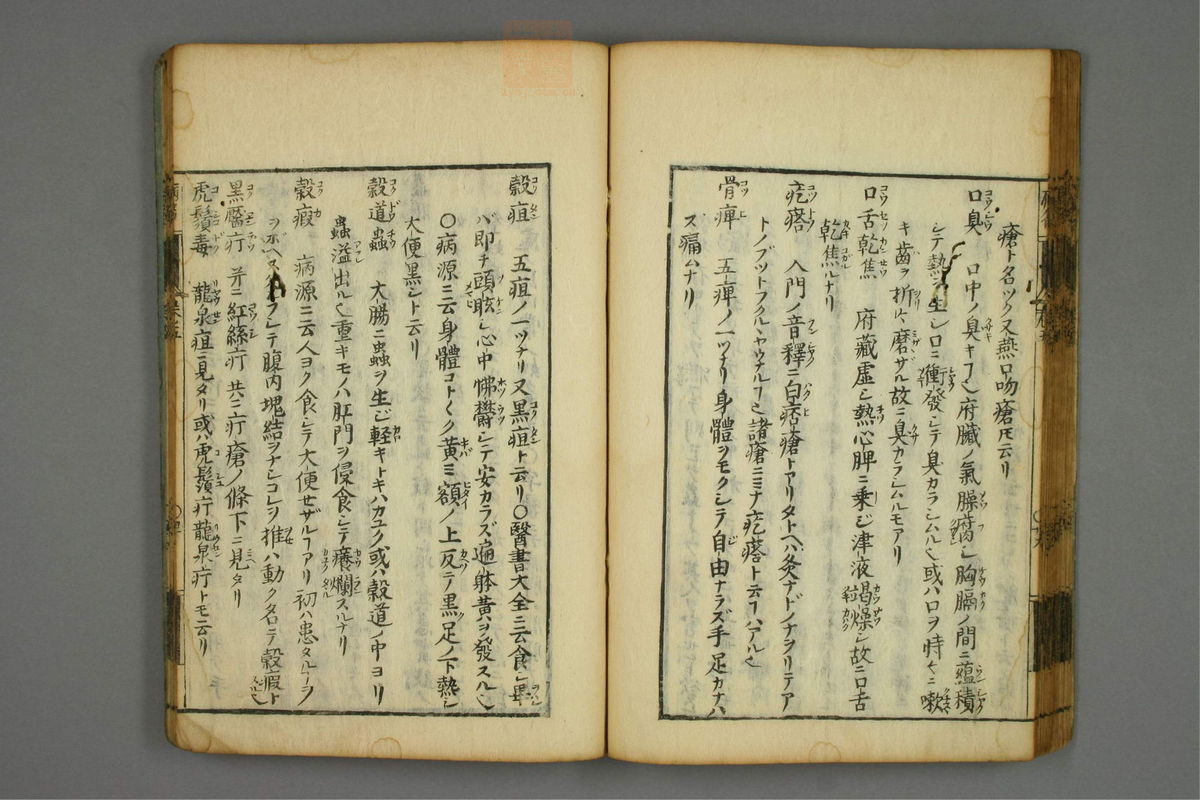 瘡ト名ツク又燕口吻瘡𪜈云リ
口臭 口中ノ臭キヿ也府臓ノ氣臊腐シ胸膈ノ間ニ蘊積
シテ熱ヲ生シ口ニ衝發シテ臭カラシムル也或ハ口ヲ時々ニ嗽
キ齒ヲ折ハ磨サル故ニ臭カラシムルモアリ
口舌乾焦 府藏虚シ熱心脾ニ乗ジ津液竭燥シ故ニ口舌
乾焦ルナリ
疙瘩 入門ノ音釋ニ白㾦瘡トアリタトヘバ灸ナドノナヲリテア
トノブツトフクルヽヤウナルヿ也諸瘡ニミナ疙瘩ト云フハアル也
骨痺 五痺ノ一ツナリ身體ヲモクシテ自由ナラズ手足カナハ
ズ痛ムナリ
穀疸 五疸ノ一ツナリ又黒疸ト云リ〇醫書大全ニ云食シ畢
バ即チ頭眩シ心中怫欝シテ安カラズ遍躰黄ヲ發スル也
〇病源ニ云身體コトく黄ミ額ノ上反テ黒足ノ下熱シ
大便黒シト云リ
穀道蟲 大腸ニ蟲ヲ生ジ軽キトキハカユク或ハ穀道ノ中ヨリ
蟲溢出ル也重キモノハ肛門ヲ侵食シテ癢爛スルナリ
穀瘕 病源ニ云人ヨク食シテ大便セザルヿアリ初ハ患タルヿヲ
ヲボヘズ フシテ腹内塊結ヲナシコレヲ推ハ動ク名テ穀瘕ト
黒黶疔 并ニ紅絲疔 共ニ疔瘡ノ條下ニ見タリ
虎鬚毒 龍泉疽ニ見タリ或ハ虎鬚疔龍泉疔トモ云リ